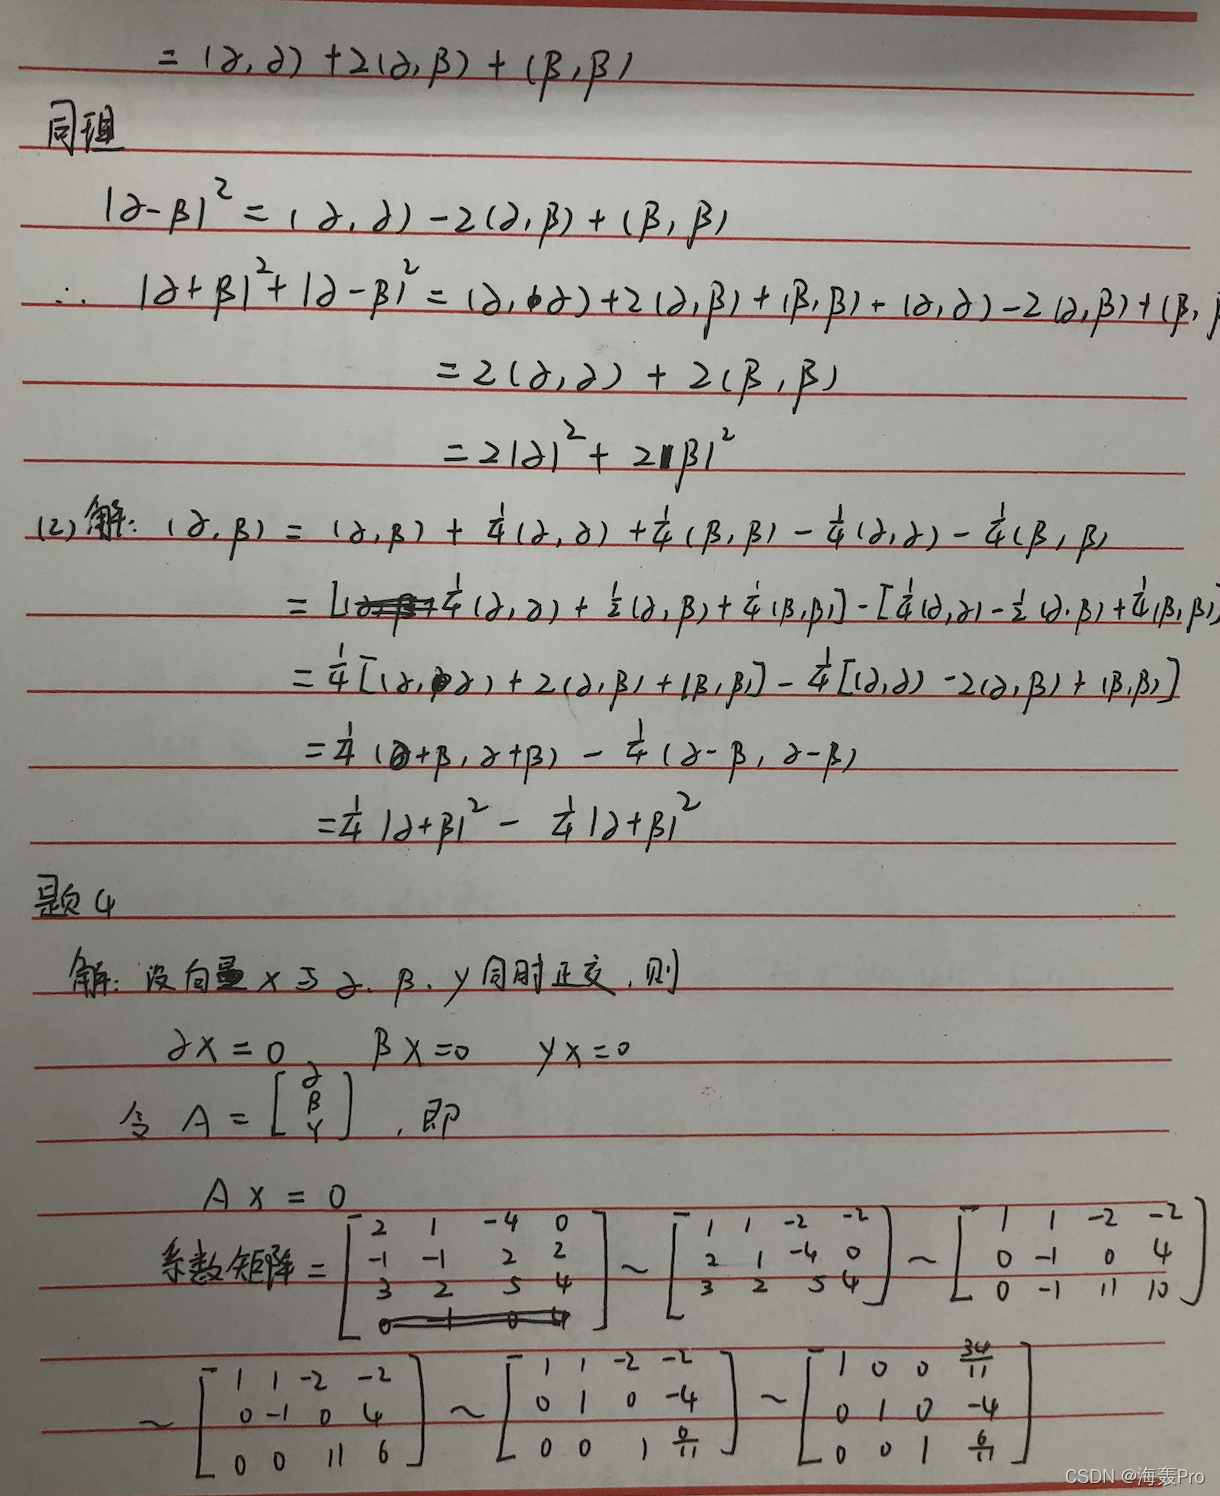 = (α,α) + 2(α,β) + (β,β)
同理
|α-β|² = (α,α) - 2(α,β) + (β,β)
∴ |α+β|² + |α-β|² = (α,α) + 2(α,β) + (β,β) + (α,α) - 2(α,β) + (β,β
= 2(α,α) + 2(β,β)
= 2|α|² + 2|β|²
(2) 解: (α,β) = (α,β) + 1/4(α,α) + 1/4(β,β) - 1/4(α,α) - 1/4(β,β)
= [1/4(α,α) + 1/2(α,β) + 1/4(β,β)] - [1/4(α,α) - 1/2(α,β) + 1/4(β,β)]
= 1/4[(α,α) + 2(α,β) + (β,β)] - 1/4[(α,α) - 2(α,β) + (β,β)]
= 1/4(α+β, α+β) - 1/4(α-β, α-β)
= 1/4|α+β|² - 1/4|α+β|²
题4
解: 设向量x与α、β、γ同时正交,则
αx=0、 βx=0 γx=0
令 A = [α β γ] ,即
Ax = 0
系数矩阵 = [2 1 -4 0; -1 -1 2 2; 3 2 5 4] ~ [1 1 -2 -2; 2 1 -4 0; 3 2 5 4] ~ [1 1 -2 -2; 0 -1 0 4; 0 -1 11 10]
~ [1 1 -2 -2; 0 -1 0 4; 0 0 11 6] ~ [1 1 -2 -2; 0 1 0 -4; 0 0 1 6/11] ~ [1 0 0 34/11; 0 1 0 -4; 0 0 1 6/11]
CSDN @海轰Pro